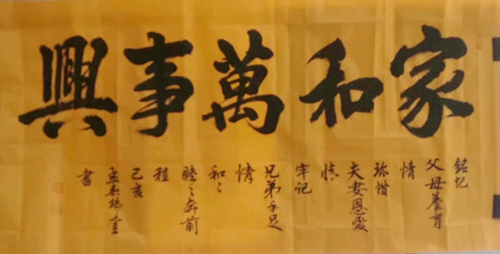 家和萬事興
銘記
父母養育
情
珎惜
夫妻恩愛
情
牢记
兄弟手足
情
和々
睦々奔前
程
己亥
書